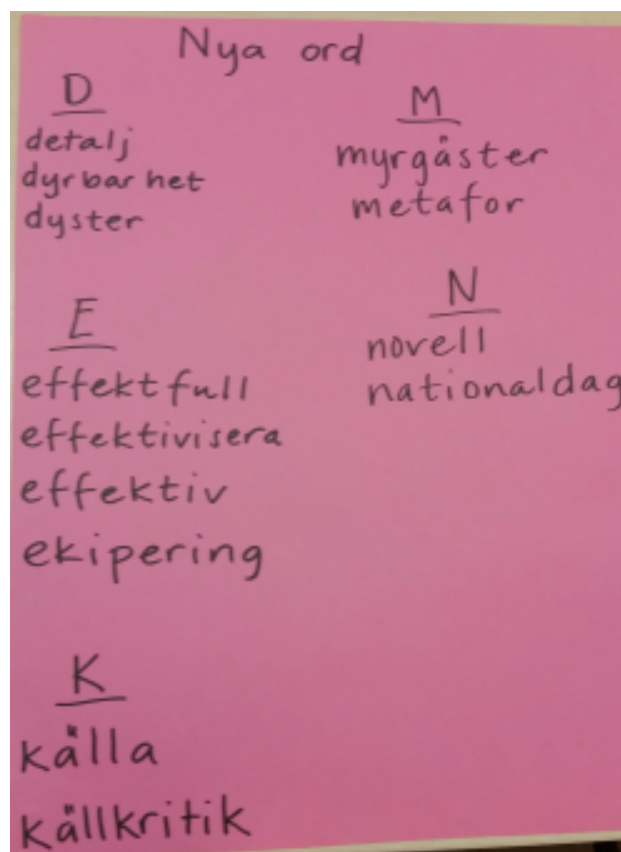 Nya ord
D
detalj
dyrbarhet
dyster
E
effektfull
effektivisera
effektiv
ekipering
K
källa
källkritik
M
myrgäster
metafor
N
novell
nationaldag